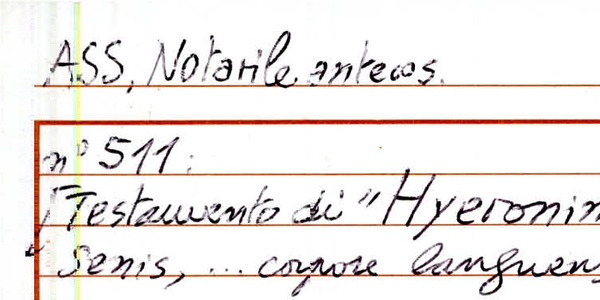 ASS, Notarile antecos.
n° 511:
Testamento di "Hyeronim
Senis, ... corpore languens